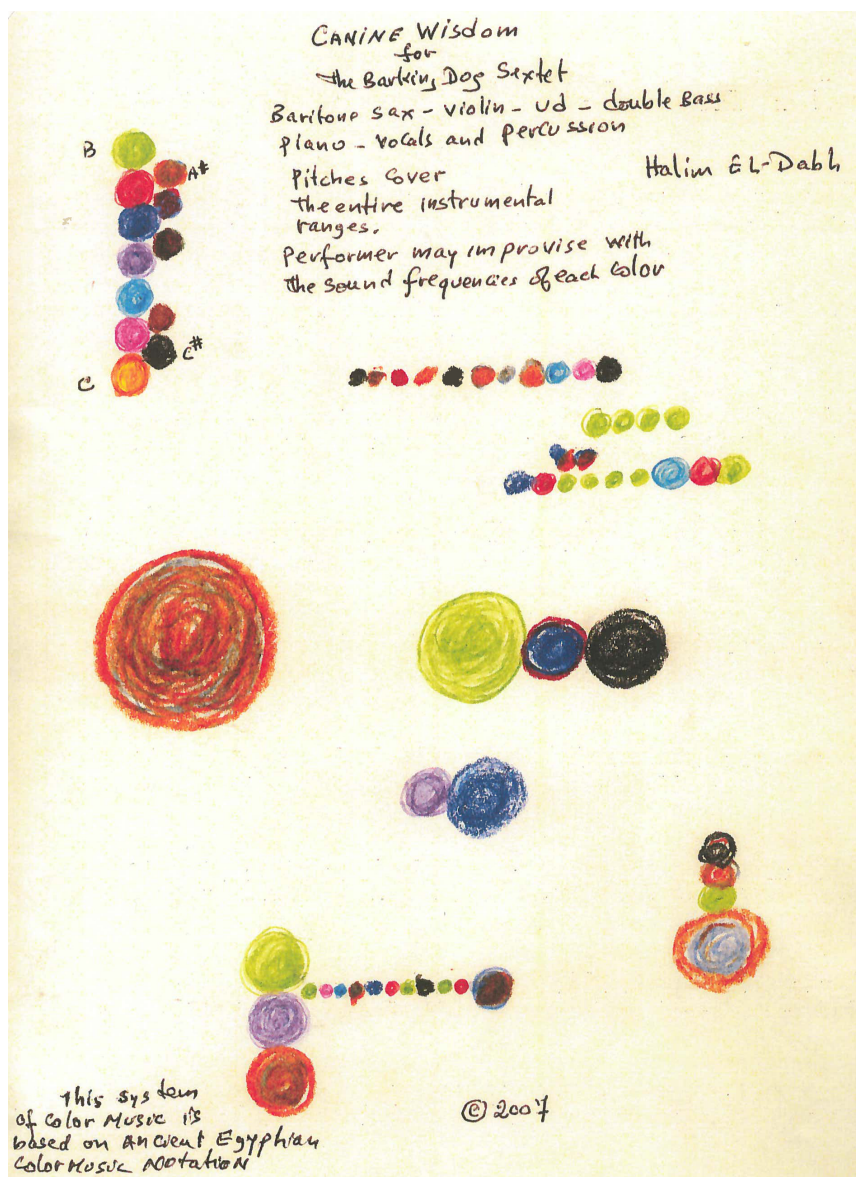 CANINE Wisdom
for
the Barking Dog Sextet
Baritone sax - violin - ud - double Bass
piano - vocals and percussion
Halim EL-Dabh
Pitches Cover
The entire instrumental
ranges.
Performer may improvise with
the sound frequencies of each color
B
A#
C#
C
This system
of Color Music is
based on Ancient Egyphian
Color Music Notation
© 2007